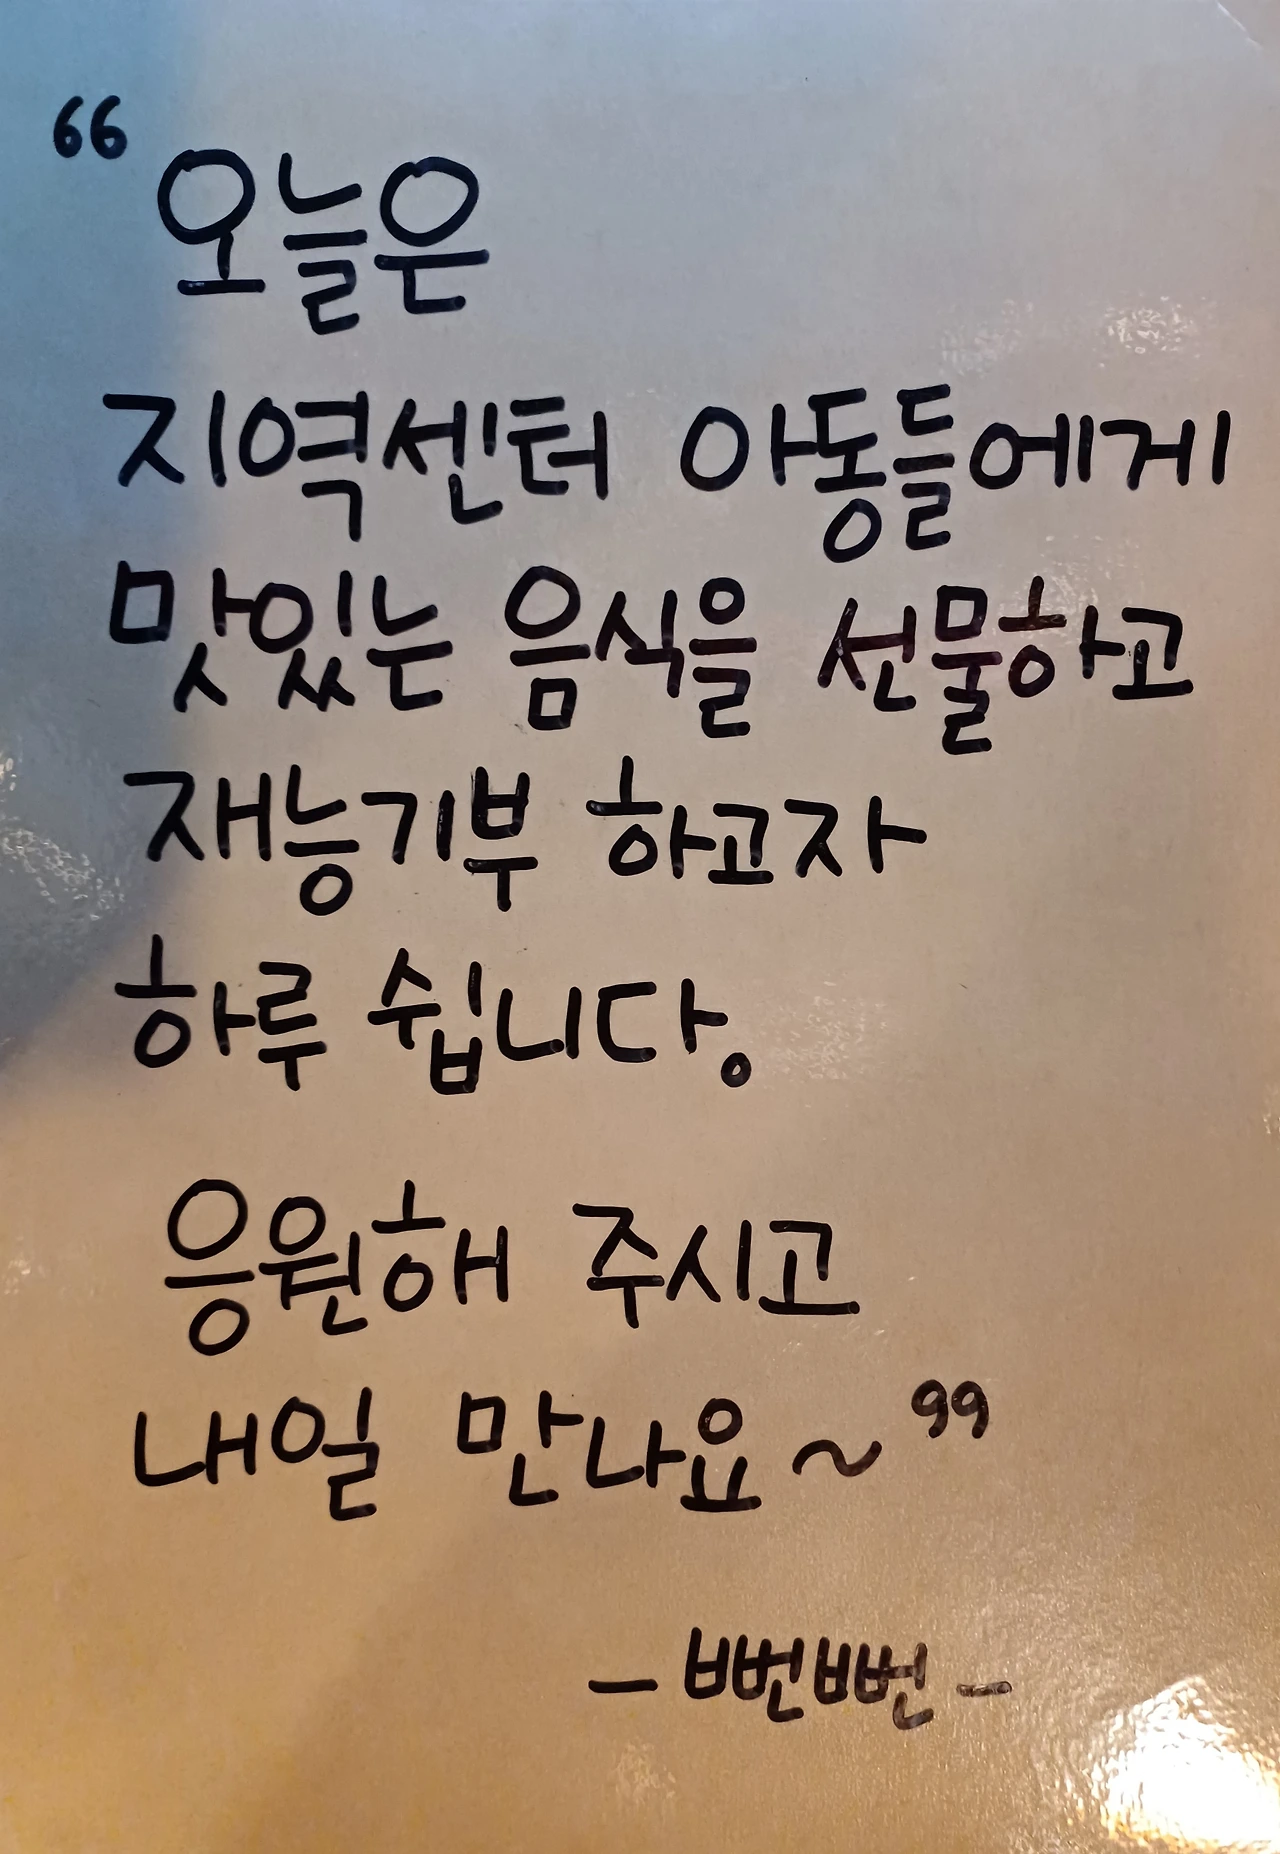 “오늘은
지역센터 아동들에게
맛있는 음식을 선물하고
재능기부 하고자
하루 쉽니다.
응원해 주시고
내일 만나요~”
- 뻔뻔 -